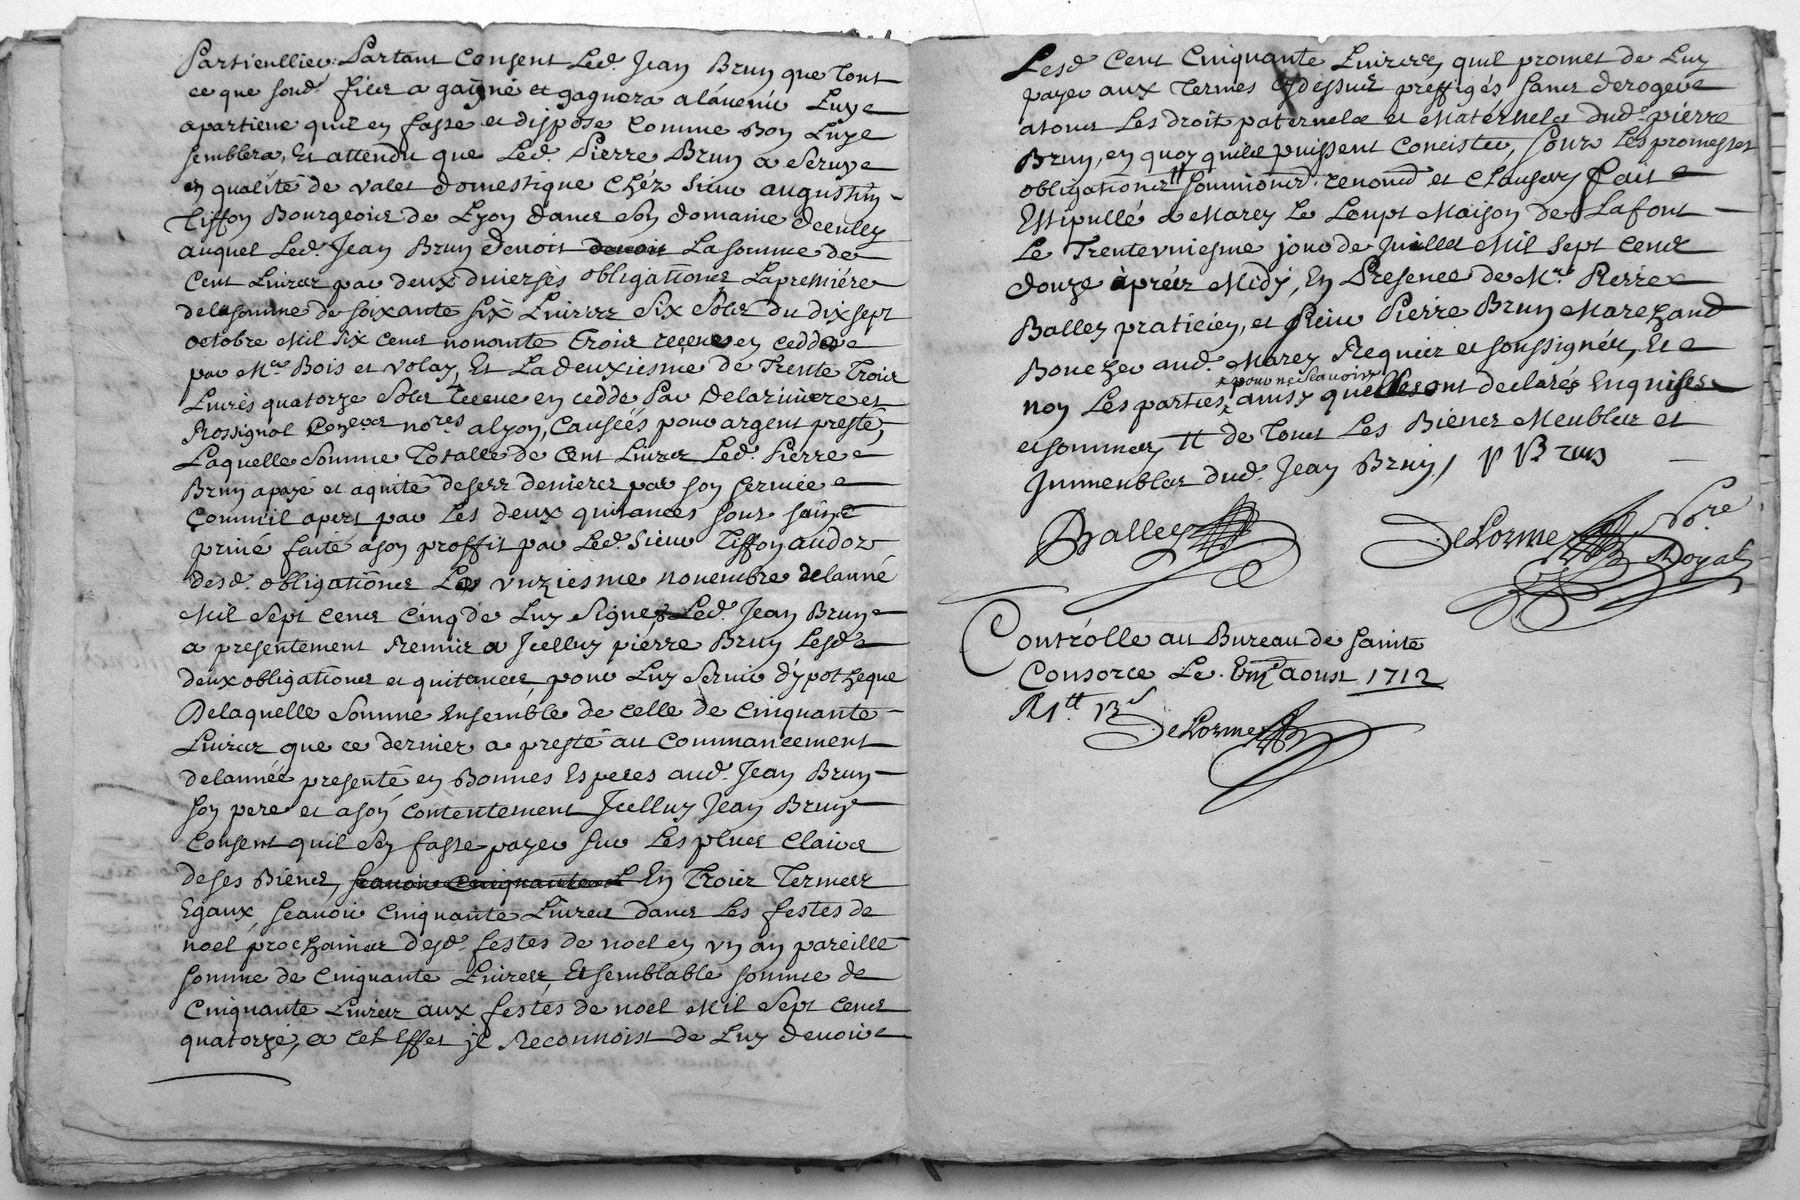 Partienllier. Partant Consent Led. Jean Brun que Tout
ce que sond. filz a gaigné et gagnera alavenir Luy
apartiene quil en fasse et dispose Comme Bon Luy
semblera, Et attendu que Led. Pierre Brun a Servy
en qualité de valet domestique chéz Sieur augustin
Tiffon Bourgeois de Lyon dans Son domaine deculley
auquel Led. Jean Brun devoit devoit La somme de
Cent Livres par deux diverses obligations La premiére
de la somme de soixante six Livres Six Sols du dix sept
octobre Mil six cens nonante Trois receues en cedde
par Mes. Bois et Volay, Et La deuxiesme de Trente Trois
Livres quatorze Sols receue en cedde Par Delariviere et
Rossignol Coners. nores. a lyon, Causéés pour argent presté,
Laquelle Somme Totalle de Cent Livres Led. Pierre
Brun a payé et aquité deses deniers par son service
Comme il apert par Les deux quitances sous saing
privé faite ason proffit par Led. Sieur Tiffon au doz
desd. obligations Le vnziesme novembre delanné
Mil Sept Cens Cinq de Luy Signe Led. Jean Brun
a presentement Remis a Icelluy pierre Brun Lesd.
deux obligations et quitances, pour Luy Servir d'ypotheque
De laquelle Somme Ensemble de celle de Cinquante
Livres que ce dernier a presté au Commancement
de lannéé presente en Bonnes Especes aud. Jean Brun
son pere et ason Contentement Icelluy Jean Brun
Consent quil Sen fasse payer sur Les plus Clairs
de ses Biens, scavoir Cinquante L En Trois Termes
Egaux, scavoir Cinquante Livres dans Les festes de
noel prochaines desd. festes de noel en vn an pareille
somme de Cinquante Livres, Et semblable somme de
Cinquante Livres aux festes de noel Mil Sept Cens
quatorze, a Cet Effet il Reconnoist de Luy devoir
Lesd. Cent Cinquante Livres, quil promet de Luy
payer aux Termes Cydessus preffigés sans deroger
atous Les droit paternels et Maternels dud. pierre
Brun, en quoy quils puissent Concister, sous Les promesses
obligations soumions. renonc. et Clauses, fait
Et stipullé a Marcy Le Loupt Maison de Lafont
Le Trentevniesme jour de Juillet Mil Sept Cens
douze aprés Midy, En Presence de Me. Pierre
Balley praticien, et Sieur Pierre Brun Marchand
Boucher aud. Marcy Requis et soussignés, Et
non Les parties, pour ne scavoir ainsy quelles ont declarés Enquises
et sommés tt de Tous Les Biens Meubles et
Immeubles dud. Jean Brun, P Brun
Balley
DeLorme Nore.
Royal
Contrólle au Bureau de Sainte
Consorce Le aoust 1712
DeLorme